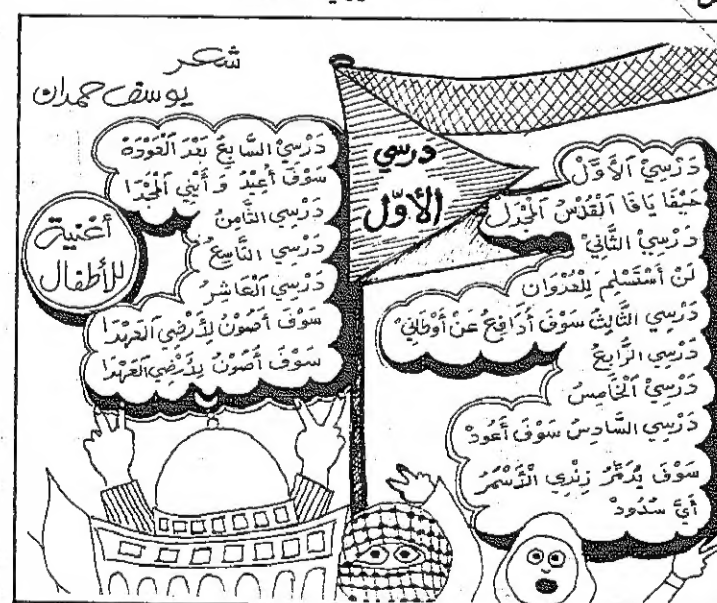 شعر
يوسف حمدان
درسي
الأوّل
أغنية
للأطفال
دَرْسِيْ اَلأَوَّلْ
حَيْفَا يَافَا اَلْقُدْسُ اَلْجَبَلْ
دَرْسِيْ الثَّانِيْ
لَنْ أَسْتَسْلِمَ لِلْعُدْوَانِ
دَرْسِي الثَّالِثُ سَوْفَ أُدَافِعُ عَنْ أَوْطَانِيْ
دَرْسِي الرَّابِعُ
دَرْسِيْ اَلْخَامِسُ
دَرْسِي السَّادِسُ سَوْفَ أَعُودْ
سَوْفَ يُدَمِّرُ زِنْدِي الْأَسْمَرُ
أَيَّ سُدُودْ
دَرْسِيْ السَّابِعُ بَعْدَ اَلْعَوْدَةْ
سَوْفَ أُعِيْدُ وَ أَبْنِي اَلْمَجْدَا
دَرْسِي الثَّامِنُ
دَرْسِي التَّاسِعُ
دَرْسِي اَلْعَاشِرُ
سَوْفَ أَصُوْنُ لِأَرْضِي اَلْعَهْدَا
سَوْفَ أَصُوْنُ لِأَرْضِي اَلْعَهْدَا